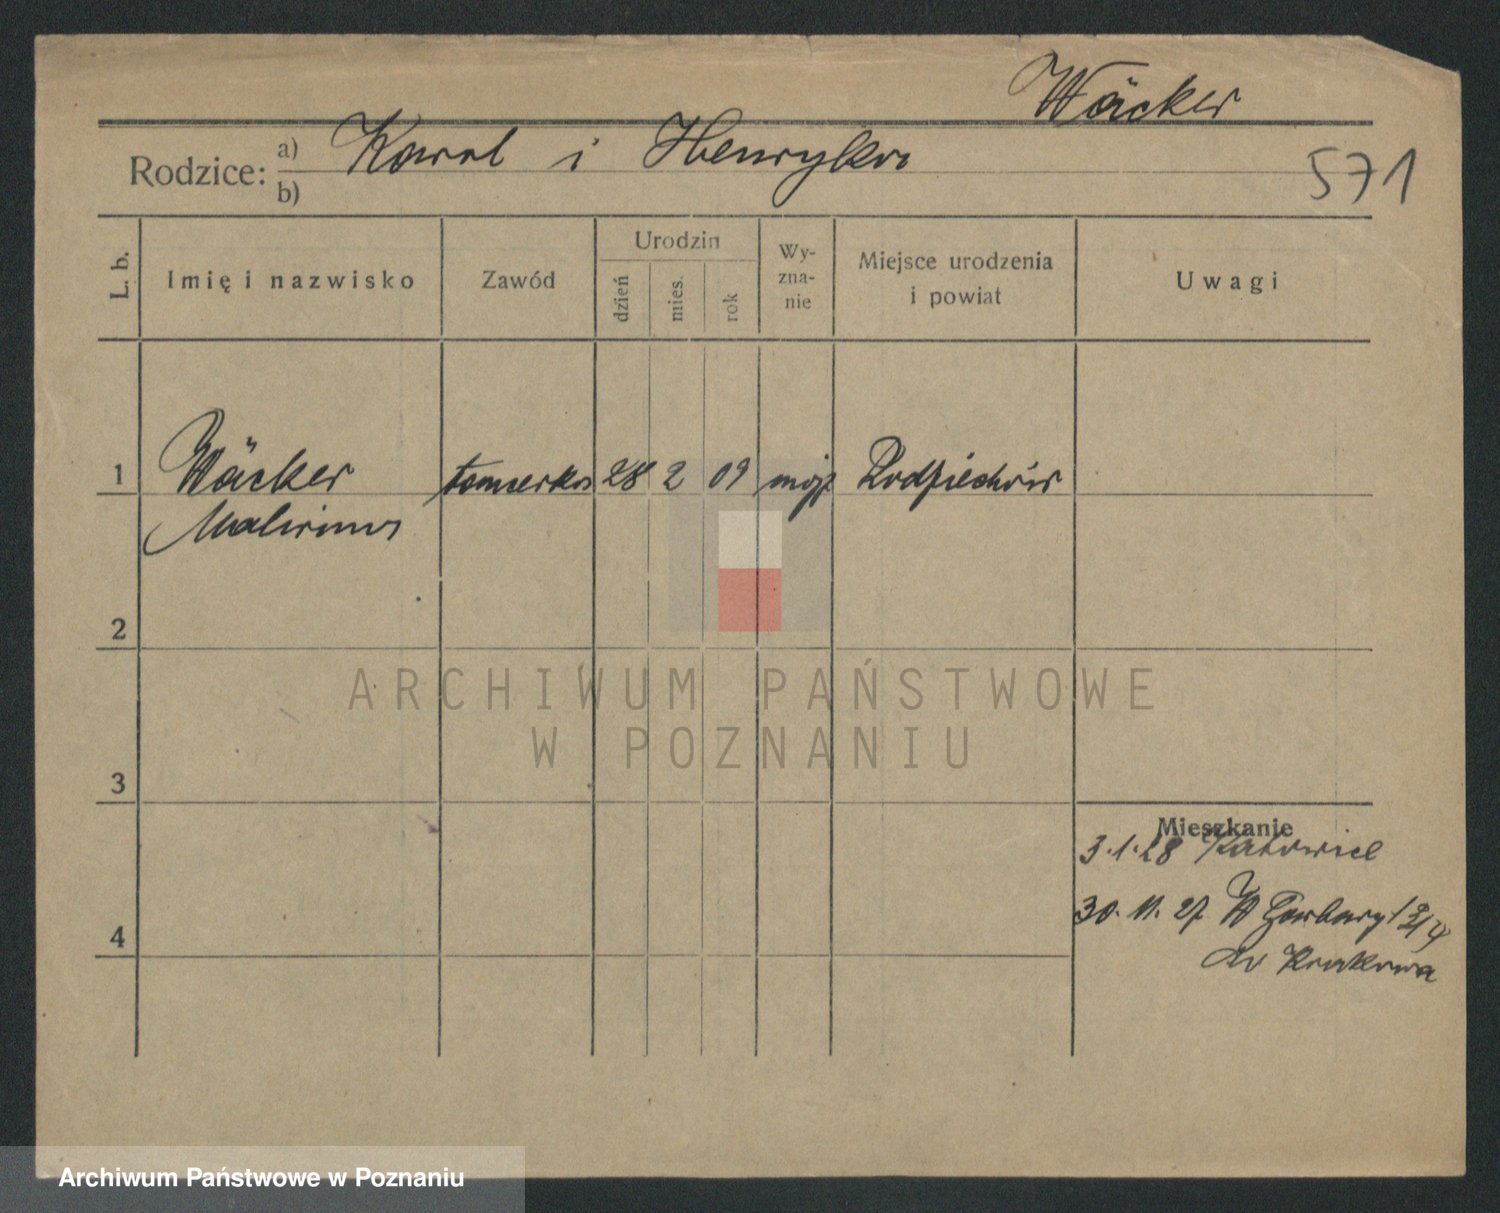 Wäcker
Rodzice: a) Karol i Henryka
b)
571
L. b.
Imię i nazwisko
Zawód
Urodzin
dzień
mies.
rok
Wy-
zna-
nie
Miejsce urodzenia
i powiat
Uwagi
1 Wäcker tancerka 28 2 09 mojż Radziechów
Malwina
2
3
4
Mieszkanie
3.1.28 Katowice
30.11.27 W Garbary
do Krakowa
ARCHIWUM PAŃSTWOWE
W POZNANIU
Archiwum Państwowe w Poznaniu